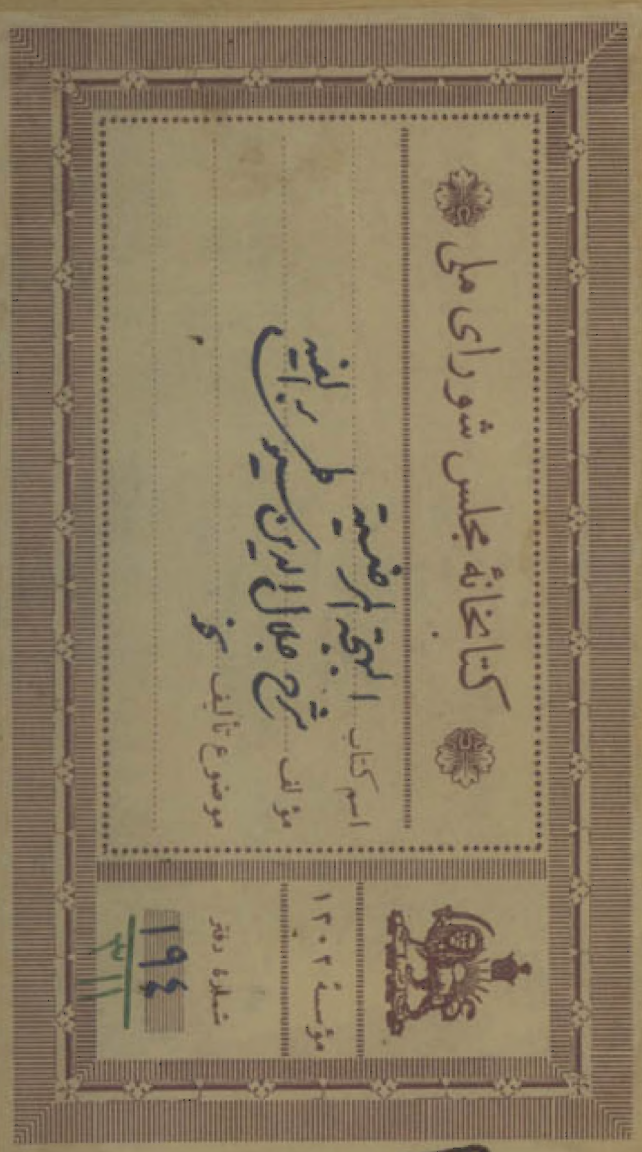 کتابخانهٔ مجلس شورای ملی
اسم کتاب البهجة المرضیة
مؤلف شرح جلال الدین سیوطی بر الفیه
موضوع تألیف نحو
مؤسسهٔ ۱۳۰۲
شمارهٔ دفتر
۱۹۴
۳۱۱